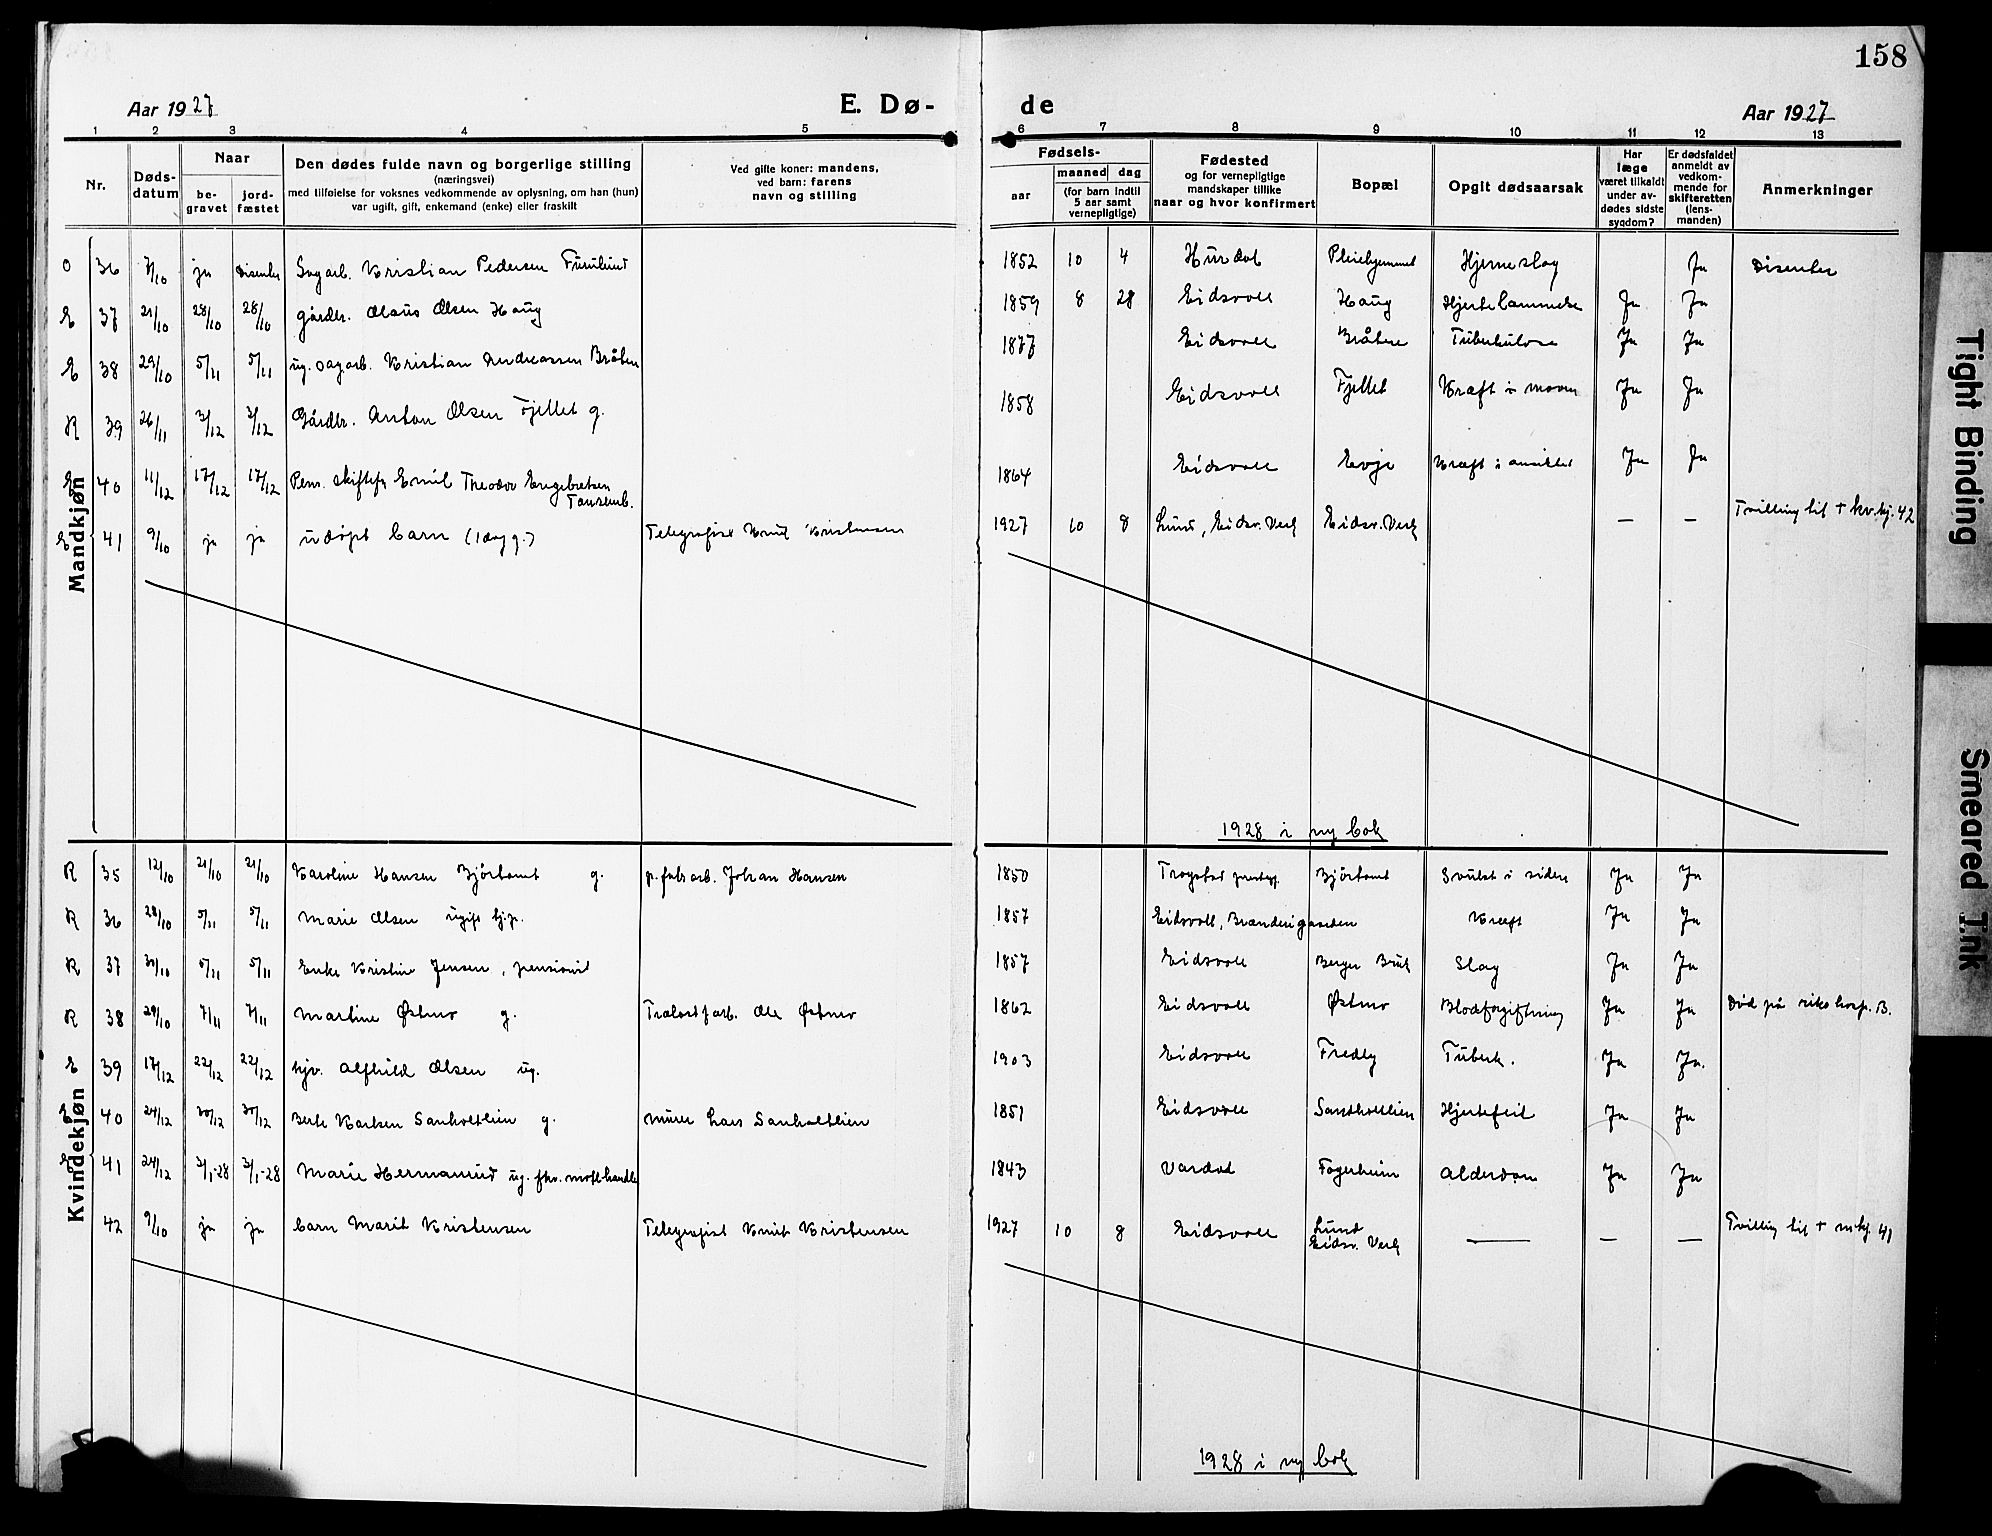 158
Aar 1927
E. Dø-
de
Aar 1927
1 2 3 4 5 6 7 8 9 10 11 12 13
Nr.
Døds-
datum
Naar
be-
gravet
jord-
fæstet
Den dødes fulde navn og borgerlige stilling
(næringsvei)
med tilføielse for voksnes vedkommende av oplysning, om han (hun)
var ugift, gift, enkemand (enke) eller fraskilt
Ved gifte koner: mandens,
ved barn: farens
navn og stilling
Fødsels-
aar
maaned dag
(for barn indtil
5 aar samt
vernepligtige)
Fødested
og for vernepligtige
mandskaper tillike
naar og hvor konfirmert
Bopæl
Opgit dødsaarsak
Har
læge
været tilkaldt
under av-
dødes sidste
sygdom?
Er dødsfaldet
anmeldt av
vedkom-
mende for
skifteretten
(lens-
manden)
Anmerkninger
Mandkjøn
O 36 7/10 ja Disenler Sagarb. Kristian Pedersen 1852 10 4 Hurdal Pleiehjemmet Hjerneslag Ja
E 37 21/10 28/10 28/10 gårdbr. Olaus Olsen Haug 1859 8 28 Eidsvoll Haug Hjertelammelse Ja Ja
E 38 29/10 5/11 5/11 ug. sagarb. Kristian Andreassen Bråten 1877 Eidsvoll Bråten Tuberkulose Ja Ja
R 39 26/11 3/12 3/12 Gårdbr. Anton Olsen Fjellet g. 1858 Eidsvoll Fjellet Kræft i maven Ja Ja
E 40 11/12 17/12 17/12 Pens. skiftef. Emil Theodor Engebretsen 1864 Eidsvoll Evje Kræft i ansiktet Ja Ja
E 41 9/10 ja ja udøpt barn (1 dag g.) Telegrafist Knut Kristensen 1927 10 8 Lund, Eidsv. Verk Eidsv. Verk — — Tvilling til + kv.kj. 42
1928 i ny bok
Kvindekjøn
R 35 12/10 21/10 21/10 Karoline Hansen Bjørtomt g. p. fabr.arb. Johan Hansen 1850 Trøgstad prestegj. Bjørtomt Svulst i siden Ja Ja
R 36 28/10 5/11 5/11 Marie Olsen ugift 1857 Eidsvoll, Brænderigaarden Kræft Ja Ja
R 37 30/10 5/11 5/11 Enke Kristine Jensen, pensionist 1857 Eidsvoll Berger Bruk Slag Ja Ja
R 38 29/10 7/11 7/11 Martine Østmo g. Trælastarb. Ole Østmo 1862 Eidsvoll Østmo Blodforgiftning Ja Ja Død på rikshosp. B.
E 39 17/12 22/12 22/12 hjv. Alfhild Olsen ug. 1903 Eidsvoll Fredly Tuberk. Ja Ja
E 40 24/12 30/12 30/12 Berte Karlsen Sanholtlien g. murer Lars Sanholtlien 1851 Eidsvoll Sandholtlien Hjertefeil Ja Ja
E 41 24/12 3/1-28 3/1-28 Marie Hermanrud ug. fhv. 1843 Vardal Fagerheim Alderdom Ja Ja
42 9/10 ja ja barn Marit Kristensen Telegrafist Knut Kristensen 1927 10 8 Eidsvoll Lund Eidsv. Verk — — — Tvilling til + m.kj. 41
1928 i ny bok
Tight Binding
Smeared Ink